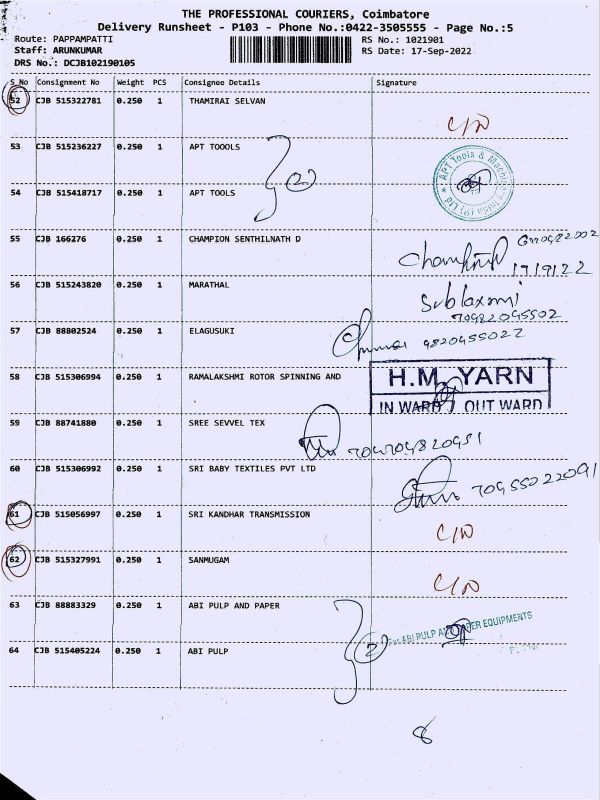 THE PROFESSIONAL COURIERS, Coimbatore
Delivery Runsheet - P103 - Phone No.:0422-3505555 - Page No.:5
Route: PAPPAMPATTI RS No.: 1021901
Staff: ARUNKUMAR RS Date: 17-Sep-2022
DRS No.: DCJB102190105
S_No Consignment No Weight PCS Consignee Details Signature
52 CJB 515322781 0.250 1 THAMIRAI SELVAN
53 CJB 515236227 0.250 1 APT TOOOLS
2
APT Tools & Machinery India (P) Ltd
54 CJB 515418717 0.250 1 APT TOOLS
55 CJB 166276 0.250 1 CHAMPION SENTHILNATH D
17/9/22
56 CJB 515243820 0.250 1 MARATHAL
Sublaxmi
57 CJB 88802524 0.250 1 ELAGUSUKI
58 CJB 515306994 0.250 1 RAMALAKSHMI ROTOR SPINNING AND
H.M. YARN
IN WARD / OUT WARD
59 CJB 88741880 0.250 1 SREE SEVVEL TEX
60 CJB 515306992 0.250 1 SRI BABY TEXTILES PVT LTD
61 CJB 515056997 0.250 1 SRI KANDHAR TRANSMISSION
62 CJB 515327991 0.250 1 SANMUGAM
63 CJB 88883329 0.250 1 ABI PULP AND PAPER
For ABI PULP AND PAPER EQUIPMENTS
2
64 CJB 515405224 0.250 1 ABI PULP
8